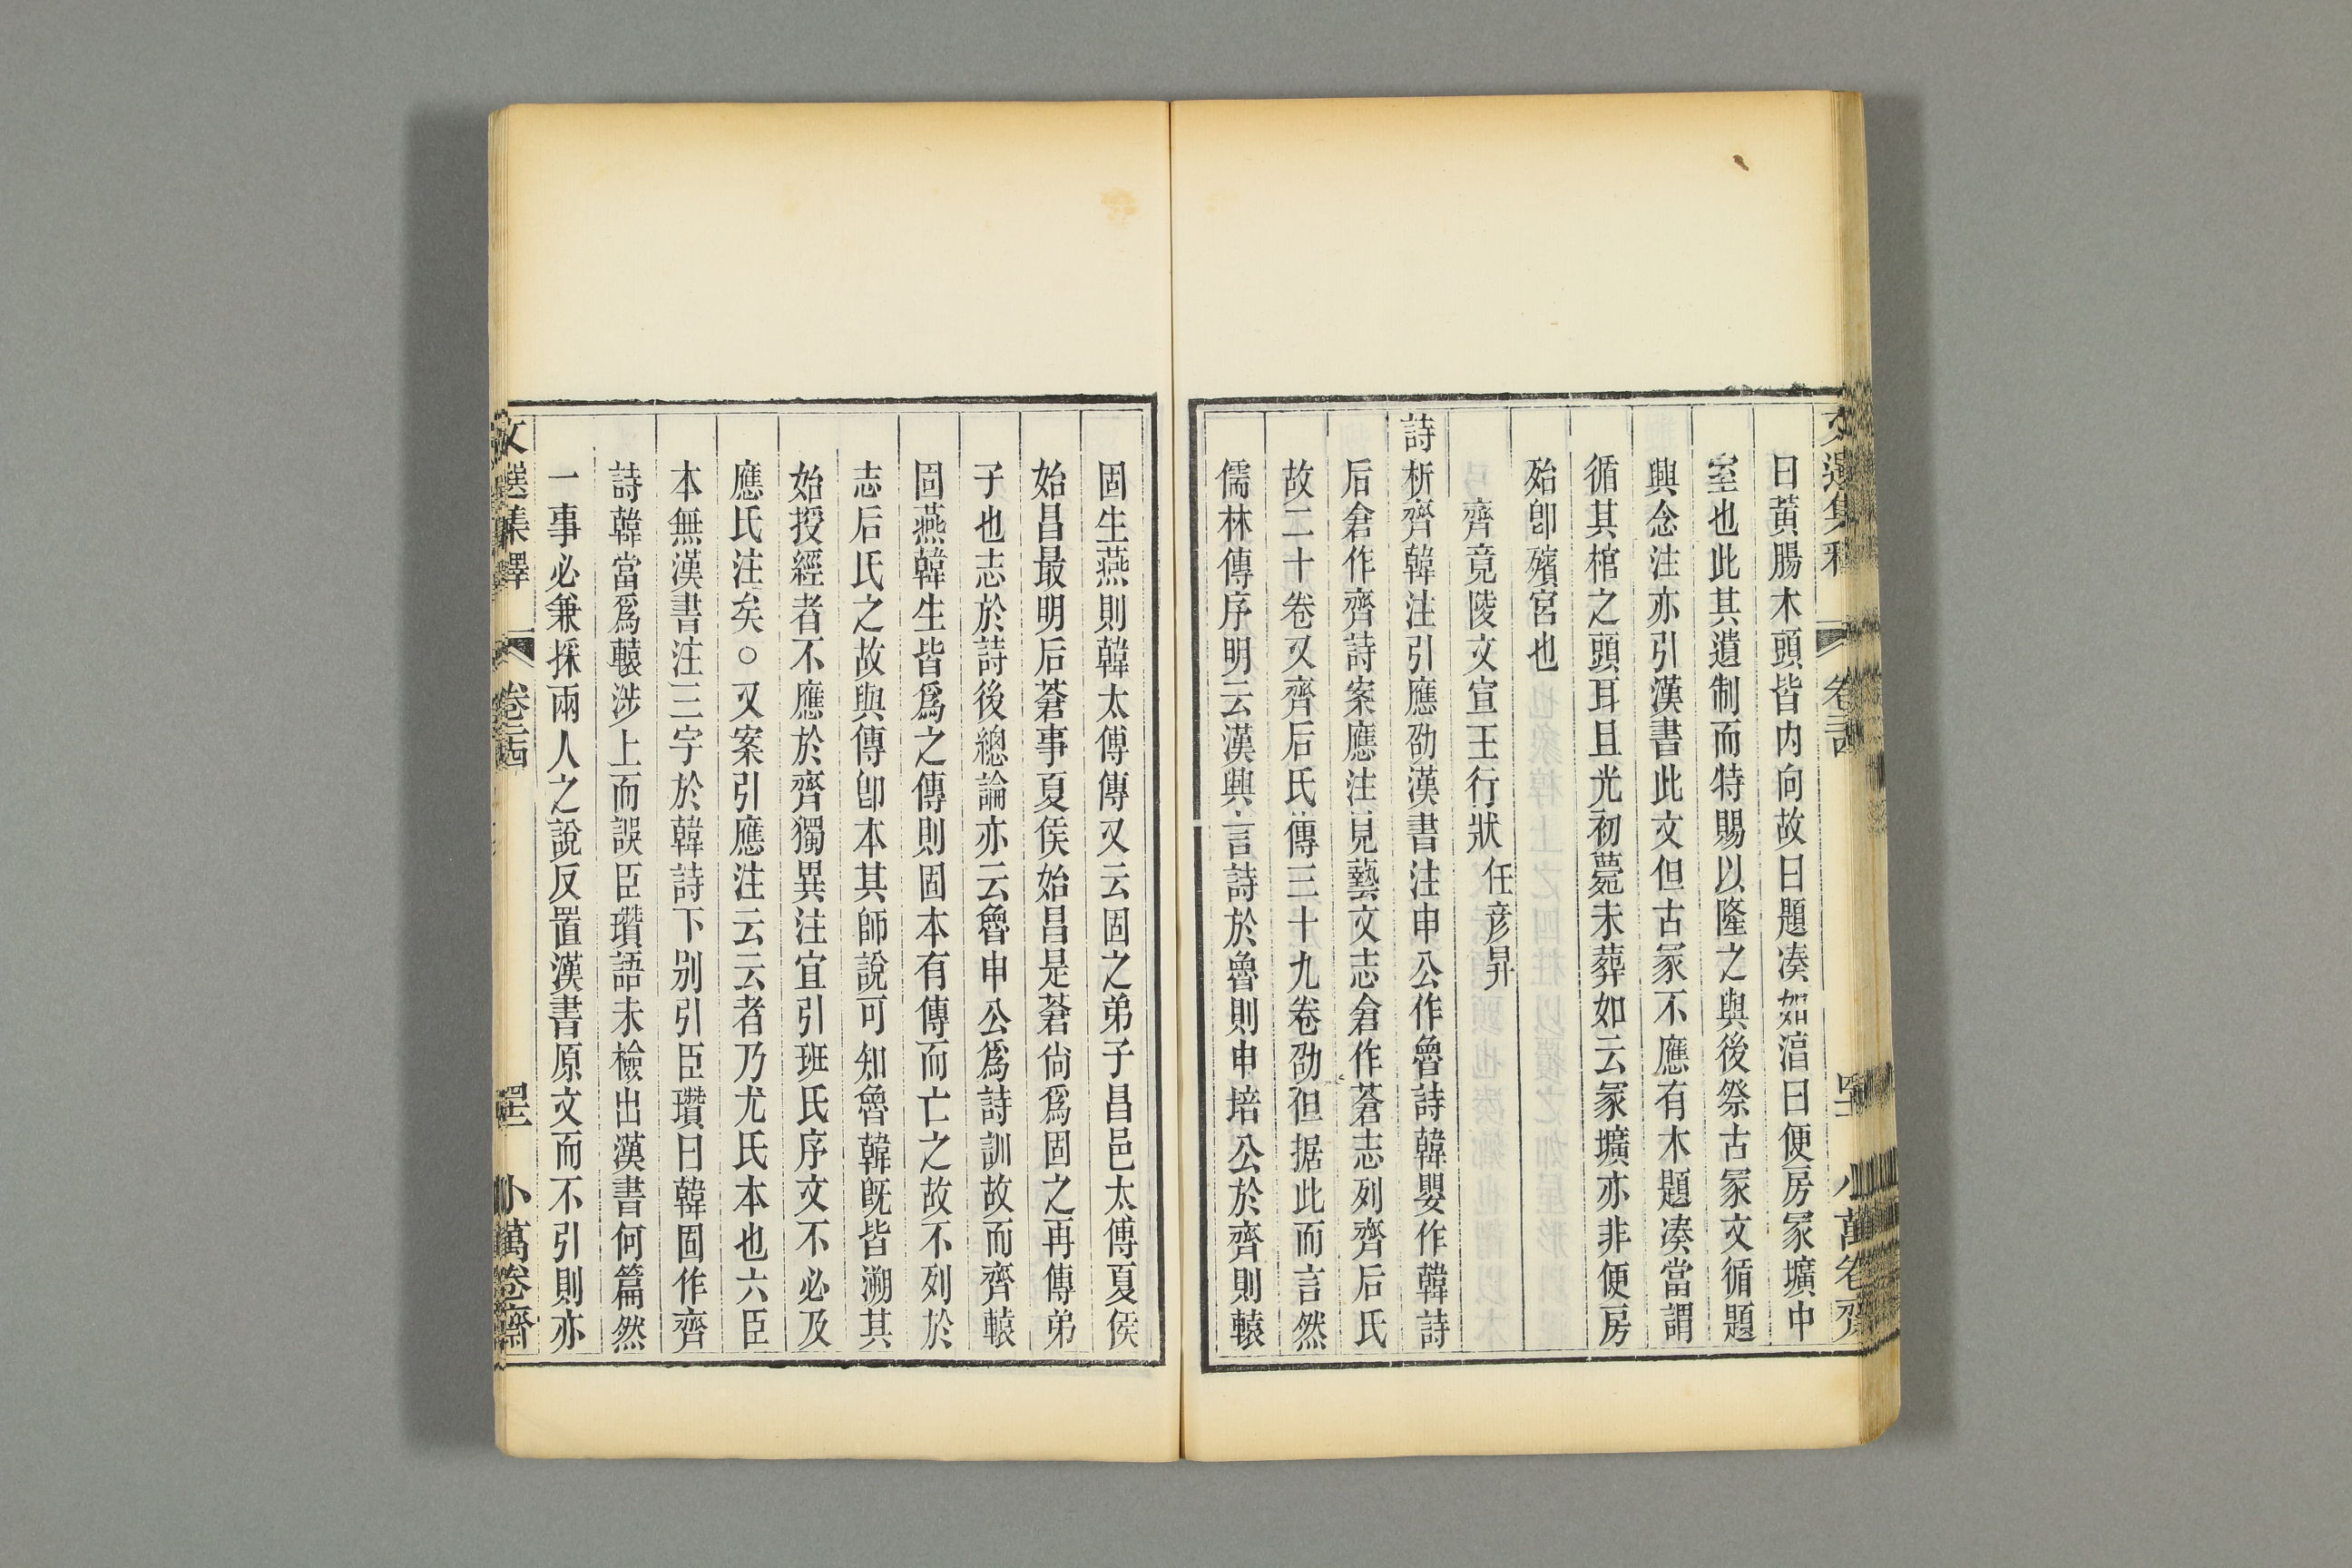 文選集釋 卷二十四 小萬卷齋
曰黃腸木頭皆内向故曰題凑如湻曰便房冢壙中
室也此其遺制而特賜以隆之與後祭古冢文循題
興念注亦引漢書此文但古冢不應有木題凑當謂
循其棺之頭耳且光初薨未葬如云冢壙亦非便房
殆卽殯宮也
齊竟陵文宣王行狀 任彥昇
詩析齊韓注引應劭漢書注申公作魯詩韓嬰作韓詩
后倉作齊詩案應注見藝文志倉作蒼志列齊后氏
故二十卷又齊后氏傳三十九卷劭但据此而言然
儒林傳序明云漢興言詩於魯則申培公於齊則轅
固生燕則韓太傅傳又云固之弟子昌邑太傅夏侯
始昌最明后蒼事夏侯始昌是蒼尙爲固之再傳弟
子也志於詩後總論亦云魯申公爲詩訓故而齊轅
固燕韓生皆爲之傳則固本有傳而亡之故不列於
志后氏之故與傳卽本其師說可知魯韓旣皆溯其
始授經者不應於齊獨異注宜引班氏序文不必及
應氏注矣○又案引應注云云者乃尤氏本也六臣
本無漢書注三字於韓詩下別引臣瓚曰韓固作齊
詩韓當爲轅涉上而誤臣瓚語未檢出漢書何篇然
一事必兼採兩人之說反置漢書原文而不引則亦
文選集釋 卷二十四 小萬卷齋